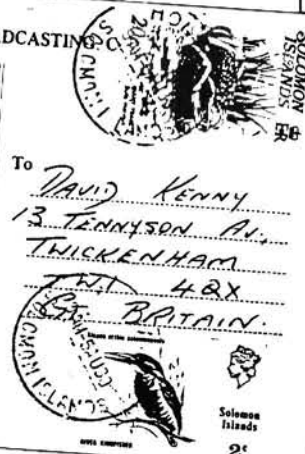 DCASTING C
SOLOMON
ISLANDS
To
DAVID KENNY
13 TENNYSON AV.,
TWICKENHAM
TW1 4QX
GT. BRITAIN.
RIVER KINGFISHER
Solomon
Islands
2c